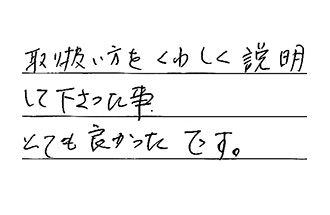 取り扱い方をくわしく説明
して下さった事
とても良かったです。